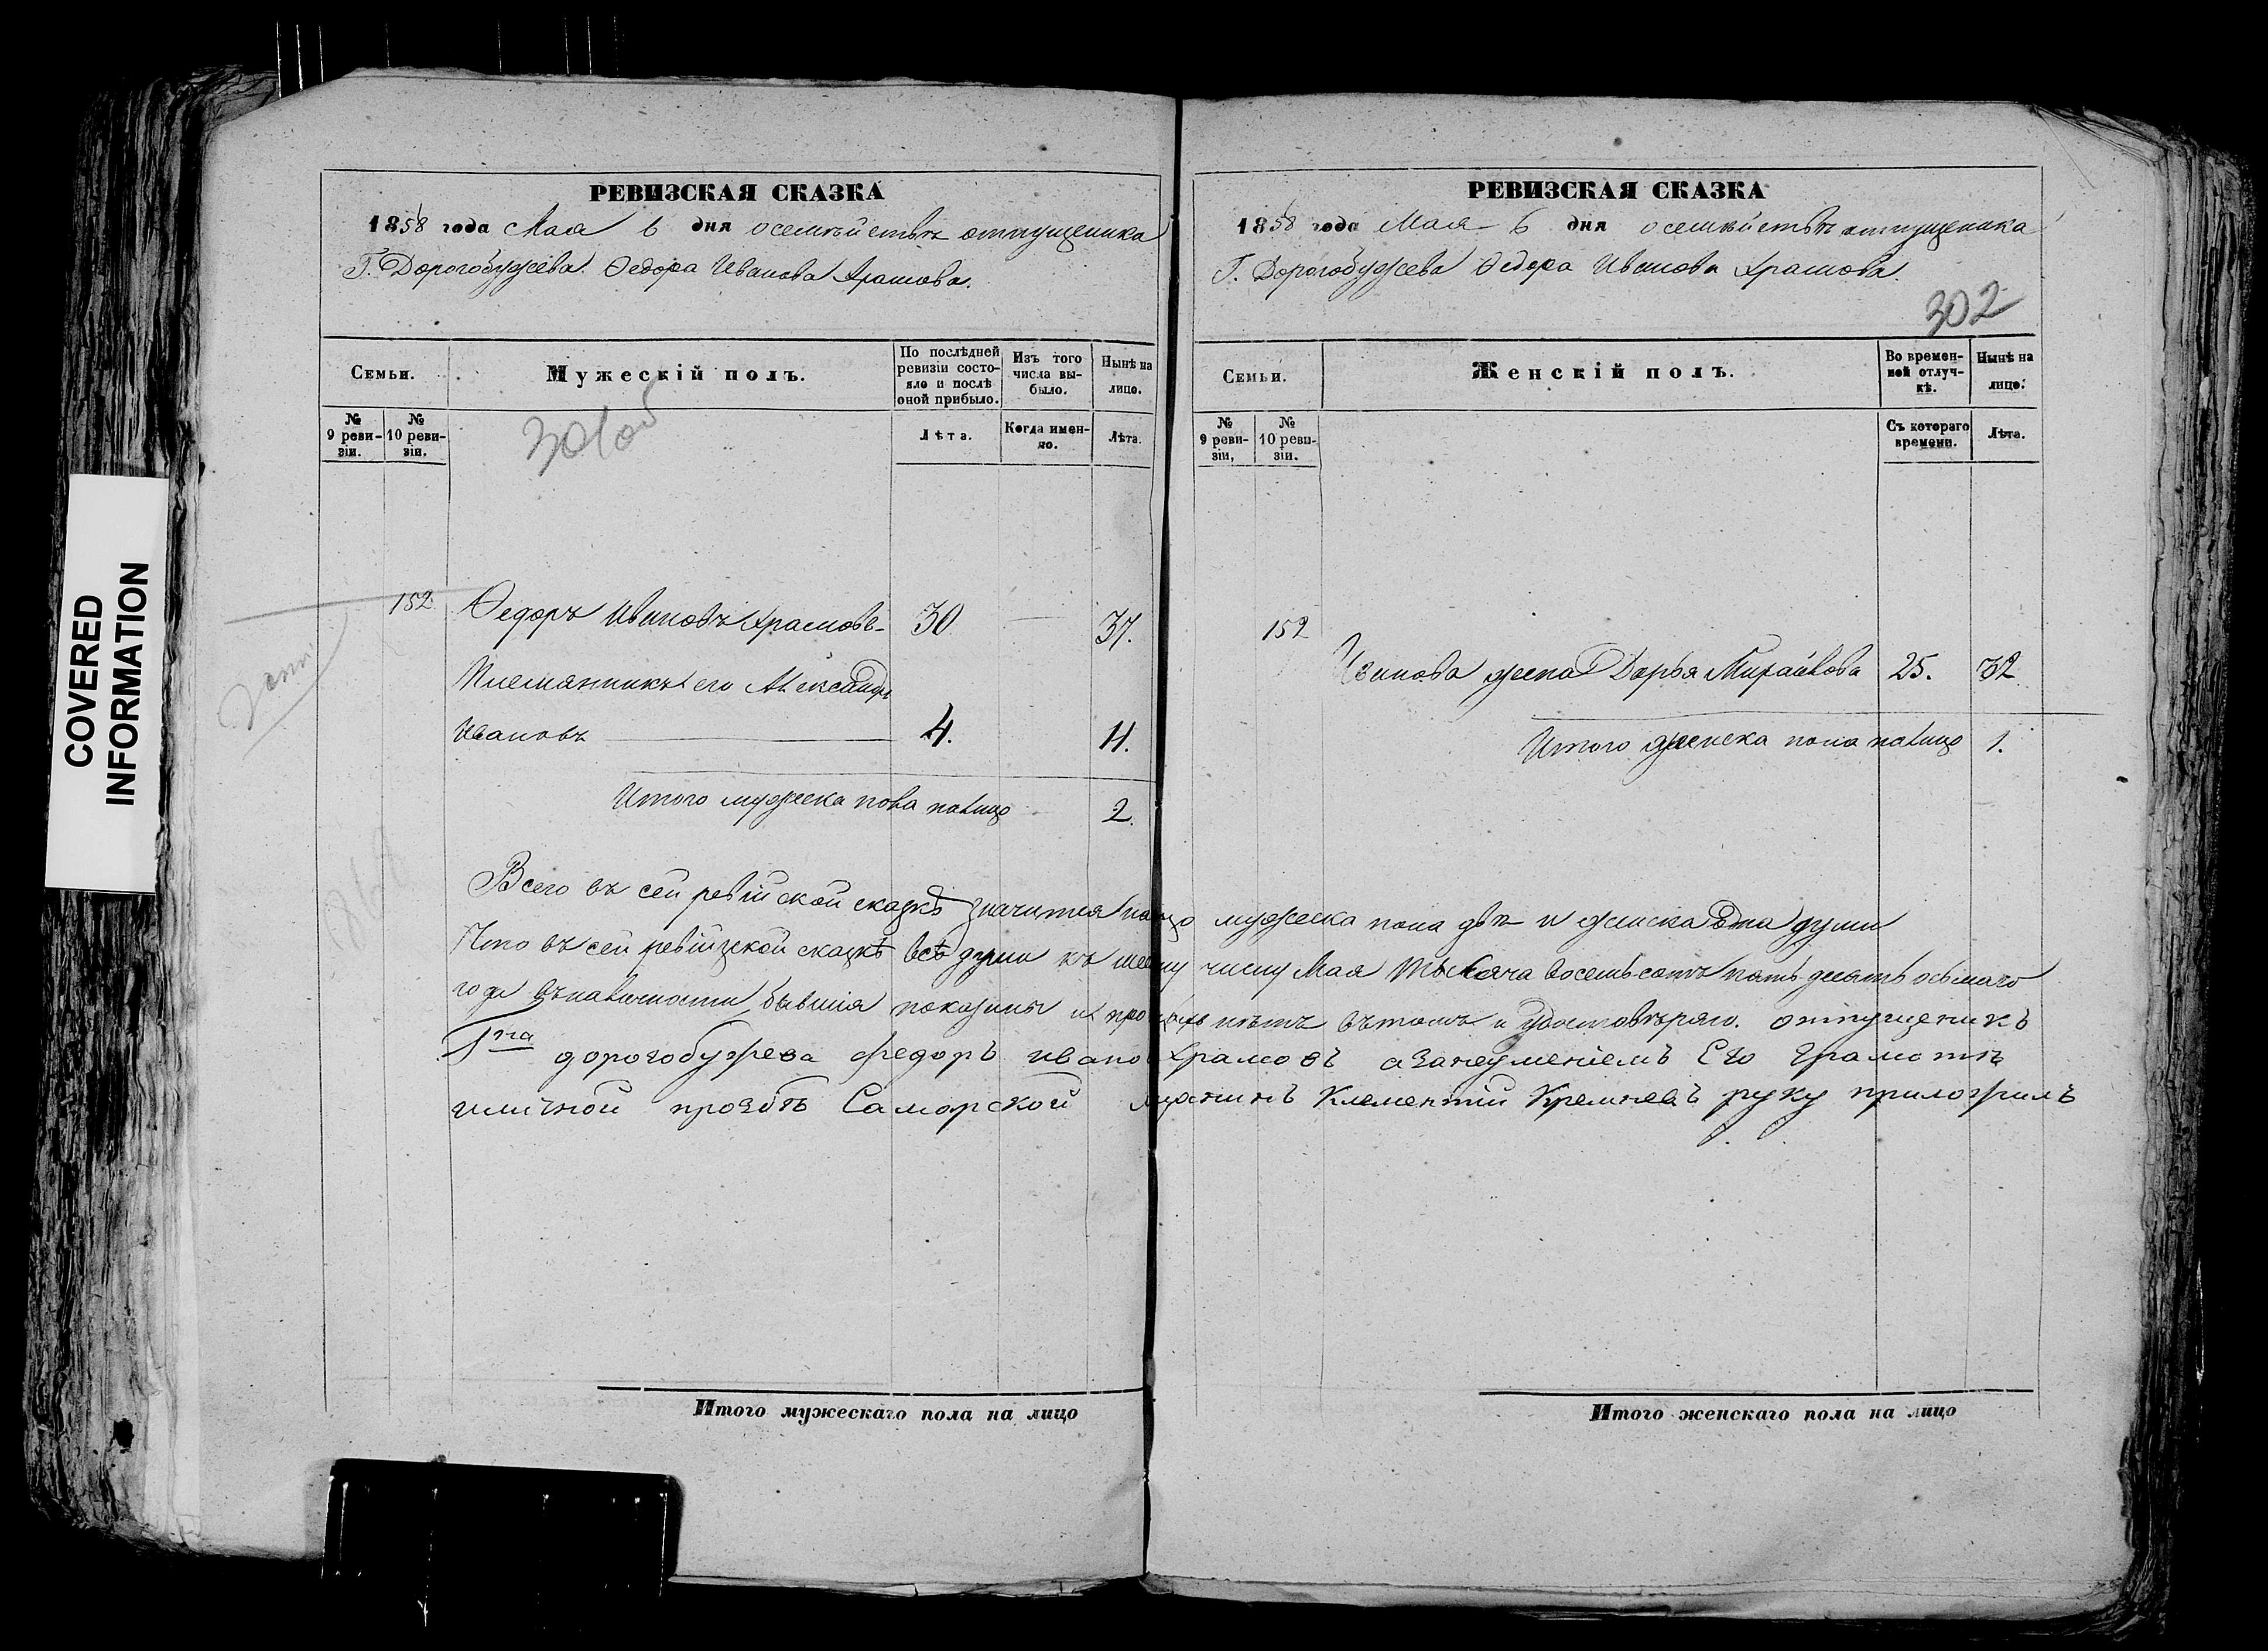 COVERED
INFORMATION
РЕВИЗСКАЯ СКАЗКА
1858 года Мая 6 дня о семействѣ отпущеника
Г. Дорогобужева. Ѳедора Иванова Храмова.
Семьи.
Мужескій полъ.
По послѣдней ревизіи состояло и послѣ оной прибыло.
Изъ того числа выбыло.
Нынѣ на лицо.
№ 9 ревизіи.
№ 10 ревизіи.
301 об
Лѣта.
Когда именно.
Лѣта.
152 Ѳедоръ Ивановъ Храмовъ 30 — 37.
Племянникъ его Александръ
Ивановъ 4. 11.
Итого мужеска пола налицо 2.
РЕВИЗСКАЯ СКАЗКА
1858 года Мая 6 дня о семействѣ отпущеника
Г. Дорогобужева Ѳедора Иванова Храмова.
302
Семьи.
Женскій полъ.
Во временной отлучкѣ.
Нынѣ на лицо.
№ 9 ревизіи,
№ 10 ревизіи.
Съ котораго времени.
Лѣта.
152
Иванова жена Дарья Михайлова 25. 32
Итого женска пола налицо 1.
Всего въ сей ревійской сказкѣ значится налицо мужеска пола двѣ и женска одна души
Что въ сей ревійзкой сказкѣ всѣ души къ шестому числу Мая тысяча восемьсотъ пятьдесятъ осьмаго
года въ наличности бывшія показаны и прописныхъ нѣтъ въ томъ и удостовѣряю. отпущеникъ
Гна дорогобужева федоръ иванов храмовъ а занеуменіемъ Его грамотѣ
иличной прозбѣ Саморской мѣщанинъ Клементій Кремневъ руку приложилъ
Итого мужескаго пола на лицо
Итого женскаго пола на лицо